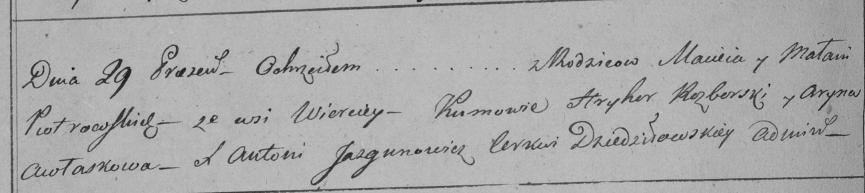 Dnia 29 Przezeń Ochrzciłem . . . . . . . . . . z Rodzicow Macieia y Małani
Piotrowskich ze wsi Wierciey Kumowie Hryhor Rozborski y Aryna
Awłaskowa X Antoni Jazgunowicz Cerkwi Dziedziłowskiey Admin